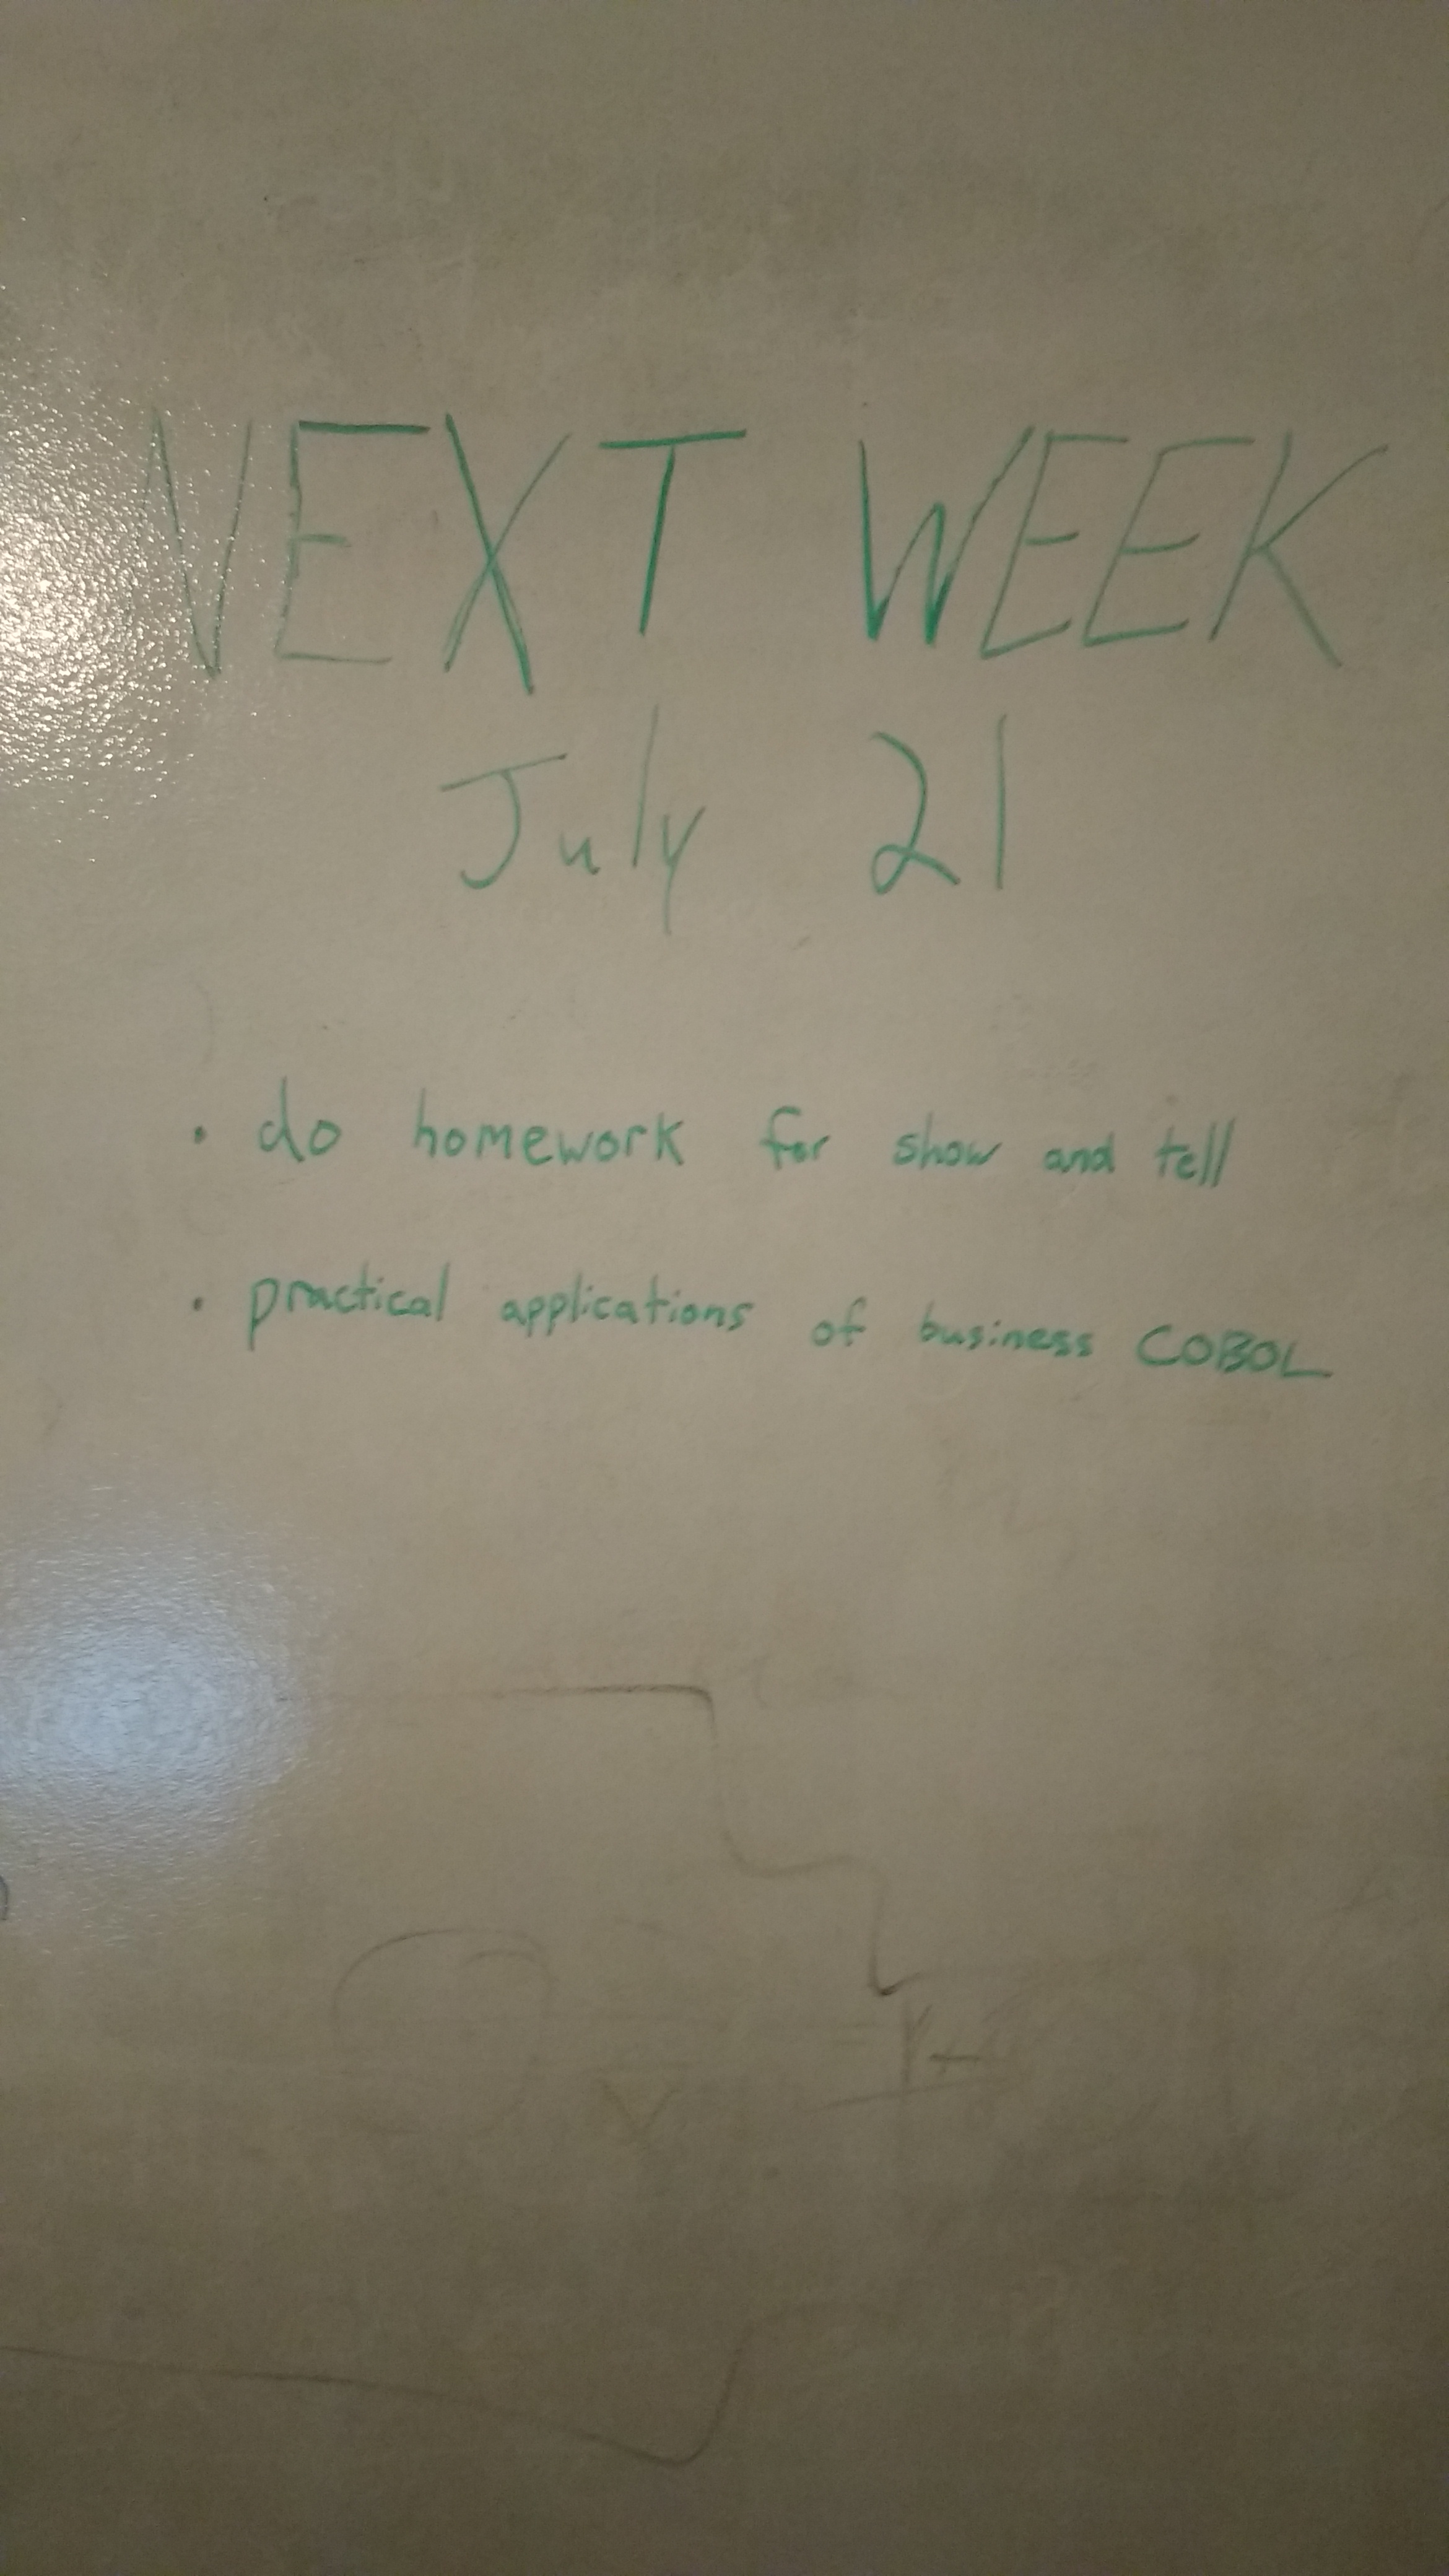 NEXT WEEK
July 21
• do homework for show and tell
• practical applications of business COBOL